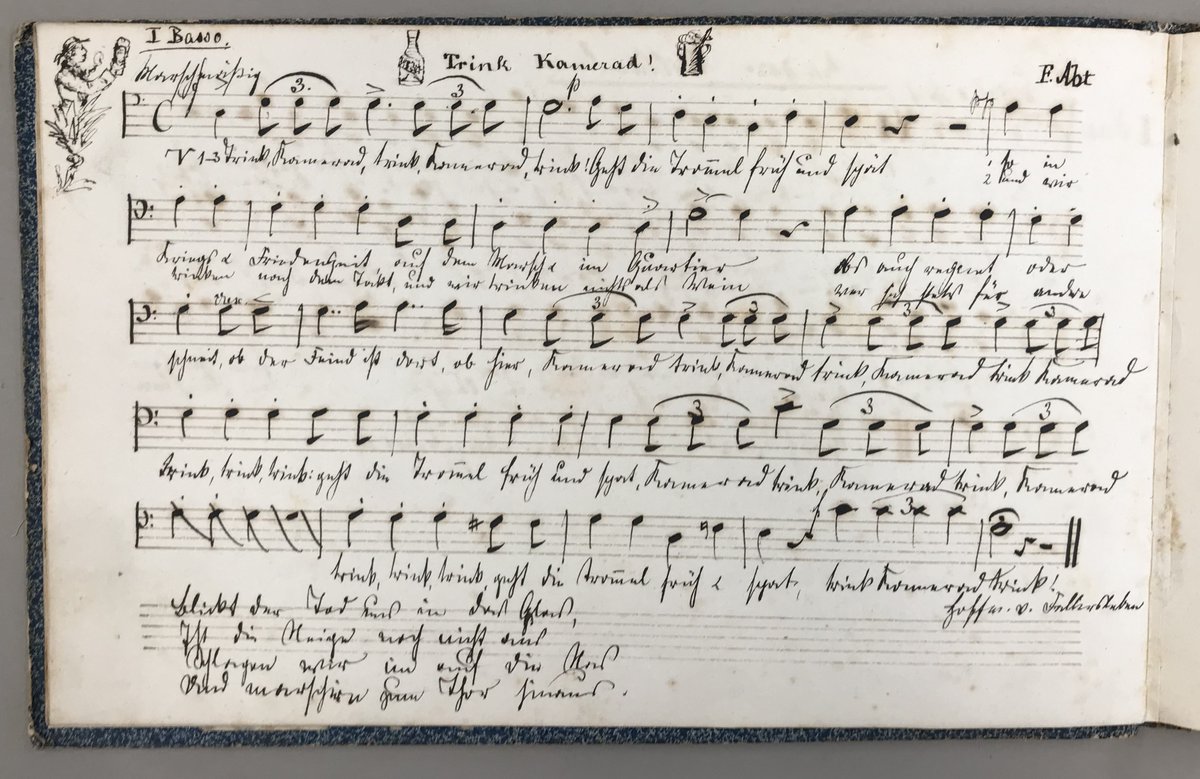 I Basso.
Trink Kamerad!
Marschmäßig
F. Abt
V 1-3 Trink, Kamerad, trink, Kamerad, trink! Geht die Trom̄el früh und spät
1 so in
2 und wir
Kriegs & Friedenszeit auf dem Marsch & im Quartier obs auch regnet oder
trinken nach dem Takt, und wir trinken nichts als Wein wer stets für andre
schneit, ob der Feind ist dort, ob hier, Kamerad trink, Kamerad trink, Kamerad trink Kamerad
trink, trink, trink: geht die Trom̄el früh und spat, Kamerad trink, Kamerad trink, Kamerad
trink, trink, trink geht die Trom̄el früh & spat, trink Kamerad trink!
Hoffm. v. Fallersleben
Blickt der Tod uns in das Glas,
Ist die Neige noch nicht aus
Schlagen wir im auf die Nas
Und marschirn zum Thor hinaus.